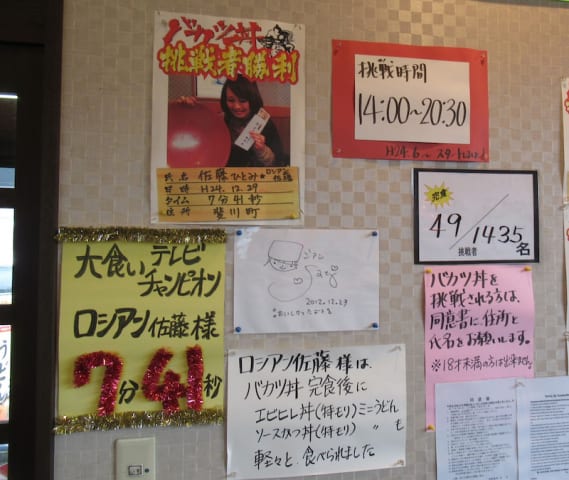 バカツ丼
挑戦者勝利
氏名 佐藤ひとみ★ロシアン佐藤
日時 H24.12.29
タイム 7分41秒
住所 斐川町
挑戦時間
14:00~20:30
H24.6~スタート
完食
49/1435名
挑戦者
大食いテレビ
チャンピオン
ロシアン佐藤様
7分41秒
2012.12.29
ロシアン佐藤様は、
バカツ丼 完食後に
エビヒレ丼(特モリ)ミニうどん
ソースカツ丼(特モリ) 〃 も
軽々と食べられました
バカツ丼を
挑戦される方は、
同意書に住所と
氏名をお願いします。
※18才未満の方は出来ません